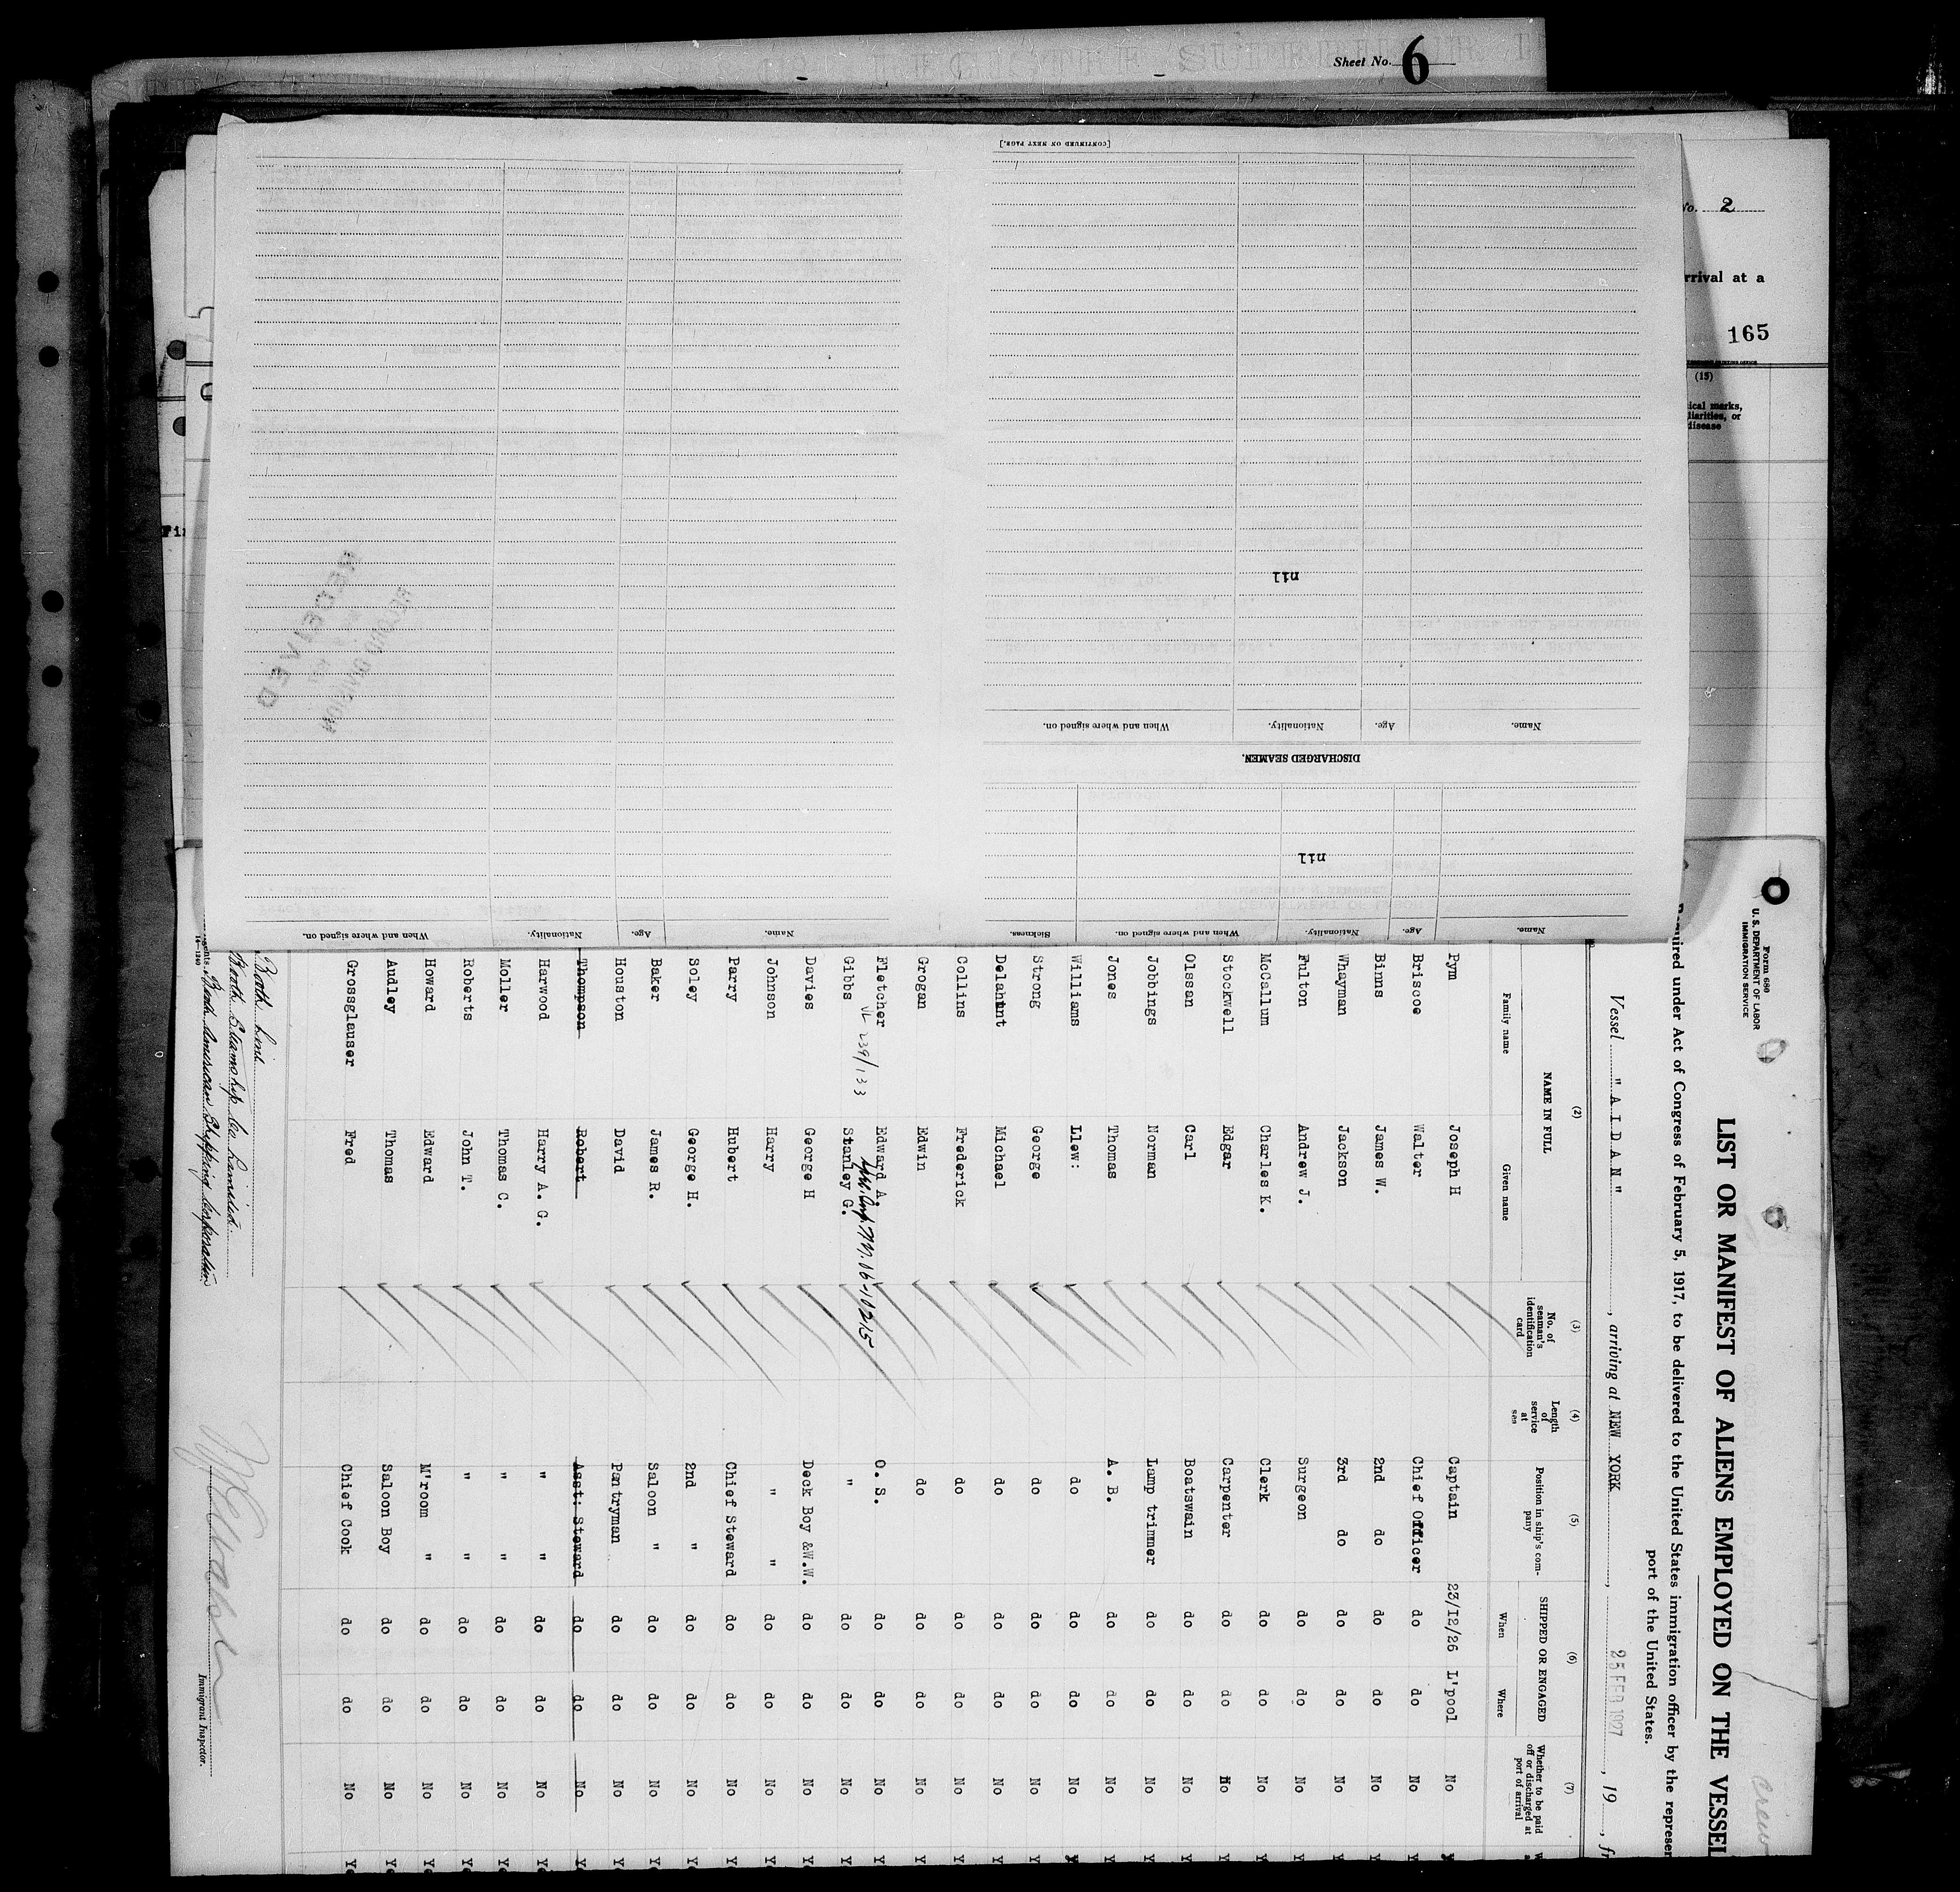 Sheet No. 6
No. 2
rrival at a
165
(15)
ical marks,
liarities, or
disease
[CONTINUED ON NEXT PAGE.]
nil
Name. Age. Nationality. When and where signed on.
DISCHARGED SEAMEN.
nil
Name. Age. Nationality. When and where signed on. Sickness. Name. Age. Nationality. When and where signed on.
RECEIVED
RECORD DIVISION
Form 680
U. S. DEPARTMENT OF LABOR
IMMIGRATION SERVICE
Crew
LIST OR MANIFEST OF ALIENS EMPLOYED ON THE VESSEL
Required under Act of Congress of February 5, 1917, to be delivered to the United States immigration officer by the represen
port of the United States.
Vessel "AIDAN", arriving at NEW YORK, 25 FEB 1927, 19, fr
(2) (3) (4) (5) (6) (7)
NAME IN FULL
Family name Given name
No. of seaman's identification card
Length of service at sea
Position in ship's company
SHIPPED OR ENGAGED
When Where
Whether to be paid off or discharged at port of arrival
Pym Joseph H Captain 23/12/26 L'pool No
Briscoe Walter Chief Officer do do No
Binns James W. 2nd do do do No
Whayman Jackson 3rd do do do No
Fulton Andrew J. Surgeon do do No
McCallum Charles K. Clerk do do No
Stockwell Edgar Carpenter do do No
Olssan Carl Boatswain do do No
Jobbings Norman Lamp trimmer do do No
Jones Thomas A. B. do do No
Williams Llew: do do do No
Strong George do do do No
Delahunt Michael do do do No
Collins Frederick do do do No
Grogan Edwin do do do No
Fletcher Edward A. O. S. do do No
VL 239/133
Gibbs Stanley G. " do do No
Davies George H Deck Boy &W.W. do do No
Johnson Harry " " do do No
Parry Hubert Chief Steward do do No
Soley George H. 2nd " do do No
Baker James R. Saloon " do do No
Houston David Pantryman do do No
Thompson Robert Asst: Steward do do No
Harwood Harry A. G. " " do do No
Moller Thomas C. " " do do No
Roberts John T. " " do do No
Howard Edward M'room " do do No
Audley Thomas Saloon Boy do do No
Grossglauser Fred Chief Cook do do No
Booth Line
Booth Steamship Co Limited.
Booth American Shipping Corporation
14—1240
Immigrant Inspector.